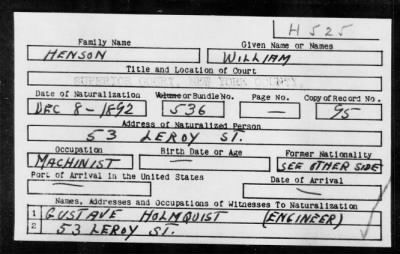 H 525
Family Name Given Name or Names
HENSON WILLIAM
Title and Location of Court
SUPERIOR COURT, NEW YORK COUNTY.
Date of Naturalization Volume or Bundle No. Page No. Copy of Record No.
DEC 8-1892 536 — 95
Address of Naturalized Person
53 LEROY ST.
Occupation Birth Date or Age Former Nationality
MACHINIST — SEE OTHER SIDE
Port of Arrival in the United States Date of Arrival
— —
Names, Addresses and Occupations of Witnesses To Naturalization
1 GUSTAVE HOLMQUIST (ENGINEER)
2 53 LEROY ST.